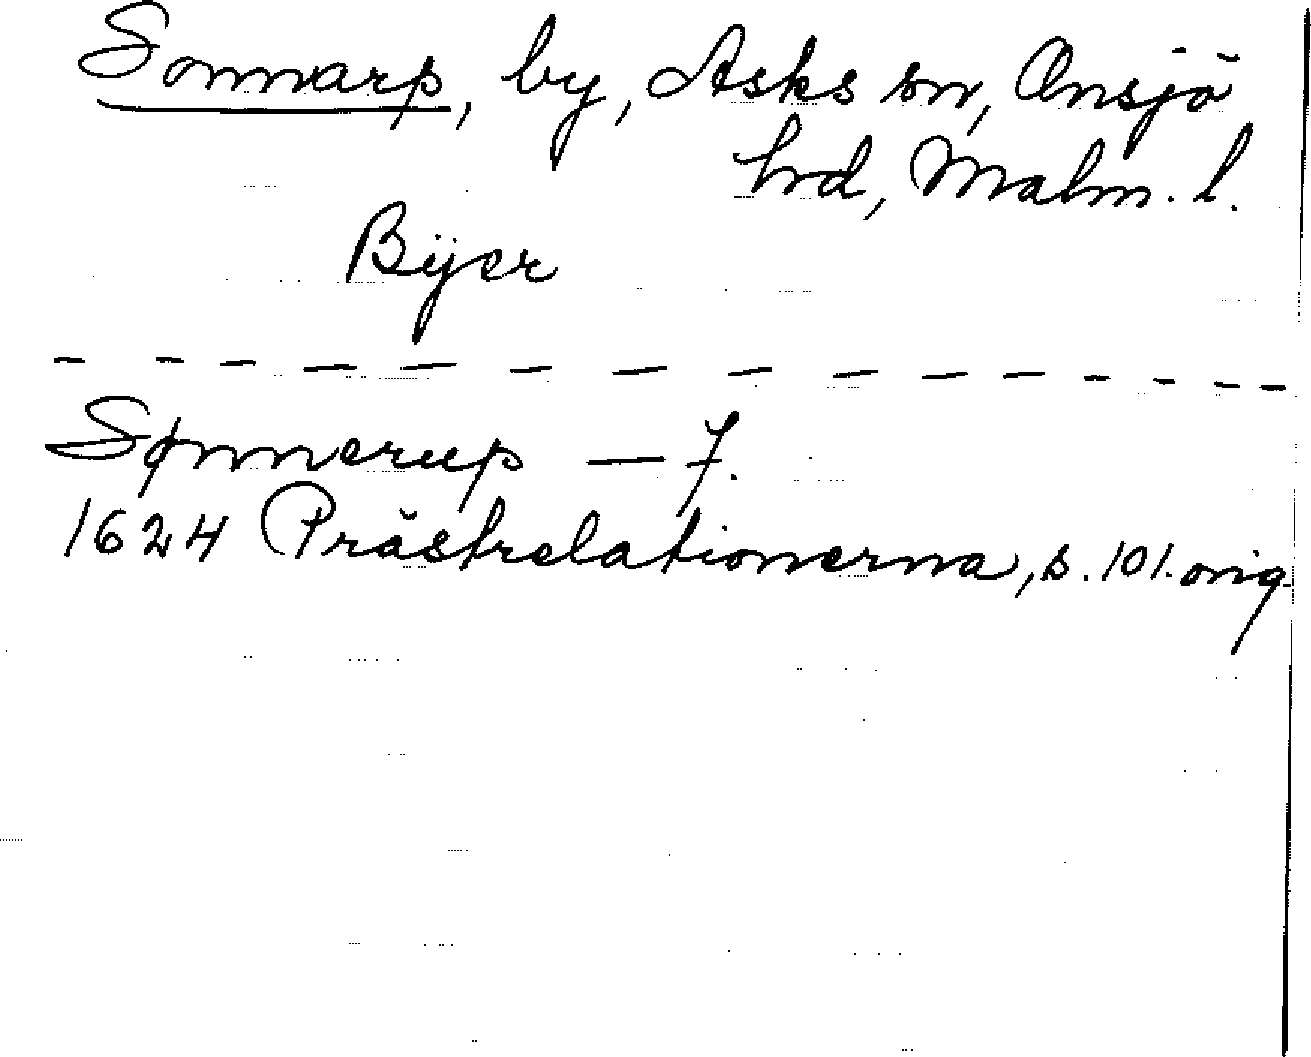 Sonnarp, by, Asks sn, Onsjö
hrd, Malm. l.
Byer
Sønnerup — 7.
1624 Prästrelationerna, s. 101. orig